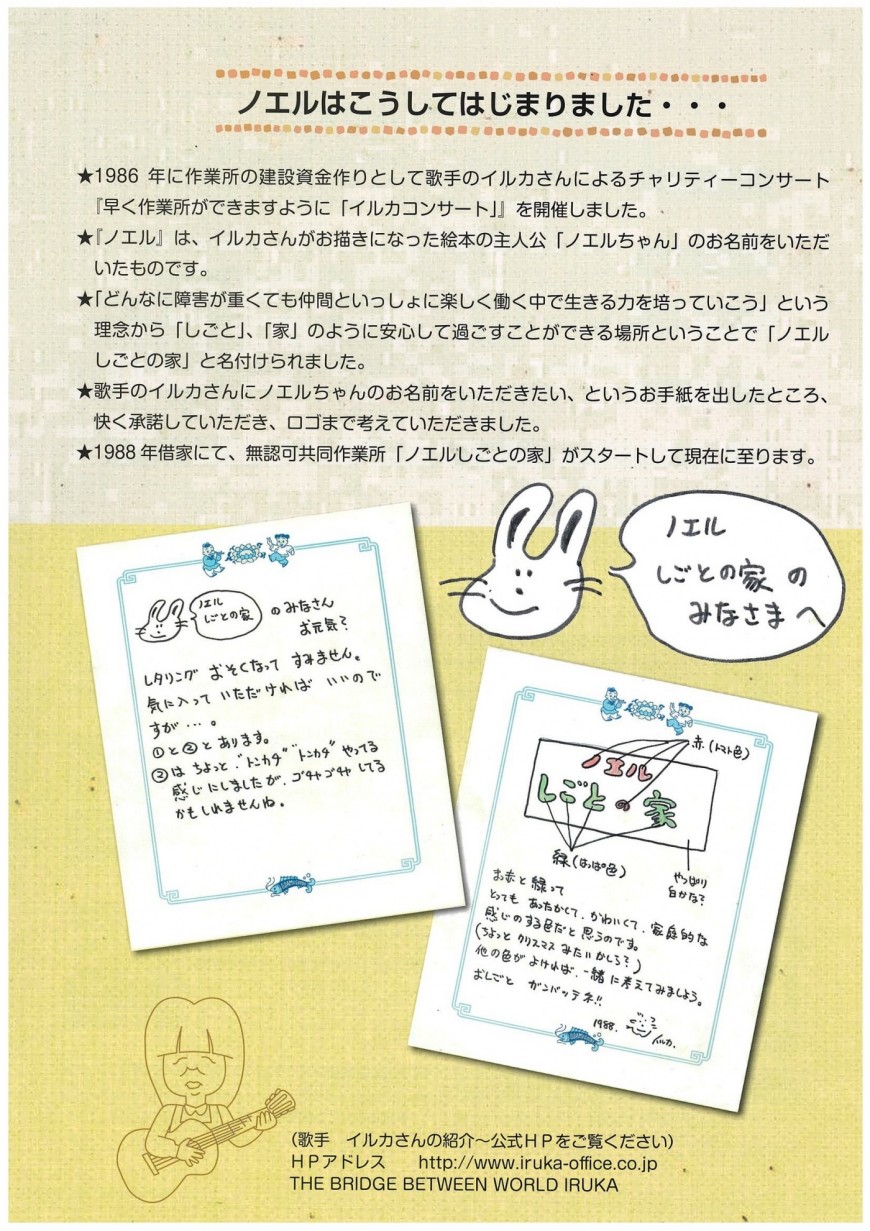 ノエルはこうしてはじまりました・・・
★1986 年に作業所の建設資金作りとして歌手のイルカさんによるチャリティーコンサート
『早く作業所ができますように「イルカコンサート」』を開催しました。
★『ノエル』は、イルカさんがお描きになった絵本の主人公「ノエルちゃん」のお名前をいただ
いたものです。
★「どんなに障害が重くても仲間といっしょに楽しく働く中で生きる力を培っていこう」という
理念から「しごと」、「家」のように安心して過ごすことができる場所ということで「ノエル
しごとの家」と名付けられました。
★歌手のイルカさんにノエルちゃんのお名前をいただきたい、というお手紙を出したところ、
快く承諾していただき、ロゴまで考えていただきました。
★1988 年借家にて、無認可共同作業所「ノエルしごとの家」がスタートして現在に至ります。
ノエル
しごとの家 の
みなさまへ
ノエル
しごとの家
のみなさん
お元気?
レタリング おそくなって すみません。
気に入って いただければ いいので
すが…。
①と②とあります。
②は ちょっと "トンカチ" "トンカチ" やってる
感じにしましたが、ゴチャゴチャ してる
かもしれませんね。
赤(トマト色)
ノエル
しごとの家
緑(はっぱ色)
やっぱり
白かな?
お赤と緑って
とっても あったかくて、かわいくて、家庭的な
感じのする色だと思うのです。
(ちょっと クリスマス みたいかしら?)
他の色が よければ、一緒に考えてみましょう。
おしごと ガンバッテネ!!
1988.
イルカ.
(歌手 イルカさんの紹介~公式HPをご覧ください)
HPアドレス http://www.iruka-office.co.jp
THE BRIDGE BETWEEN WORLD IRUKA